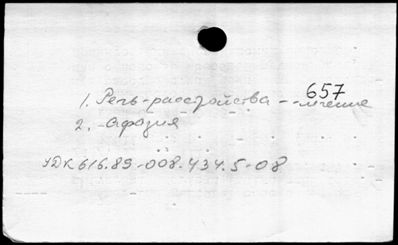 657
1. Речь-расстройства--лечение
2. Афазия
УДК 616.89-008.434.5-08